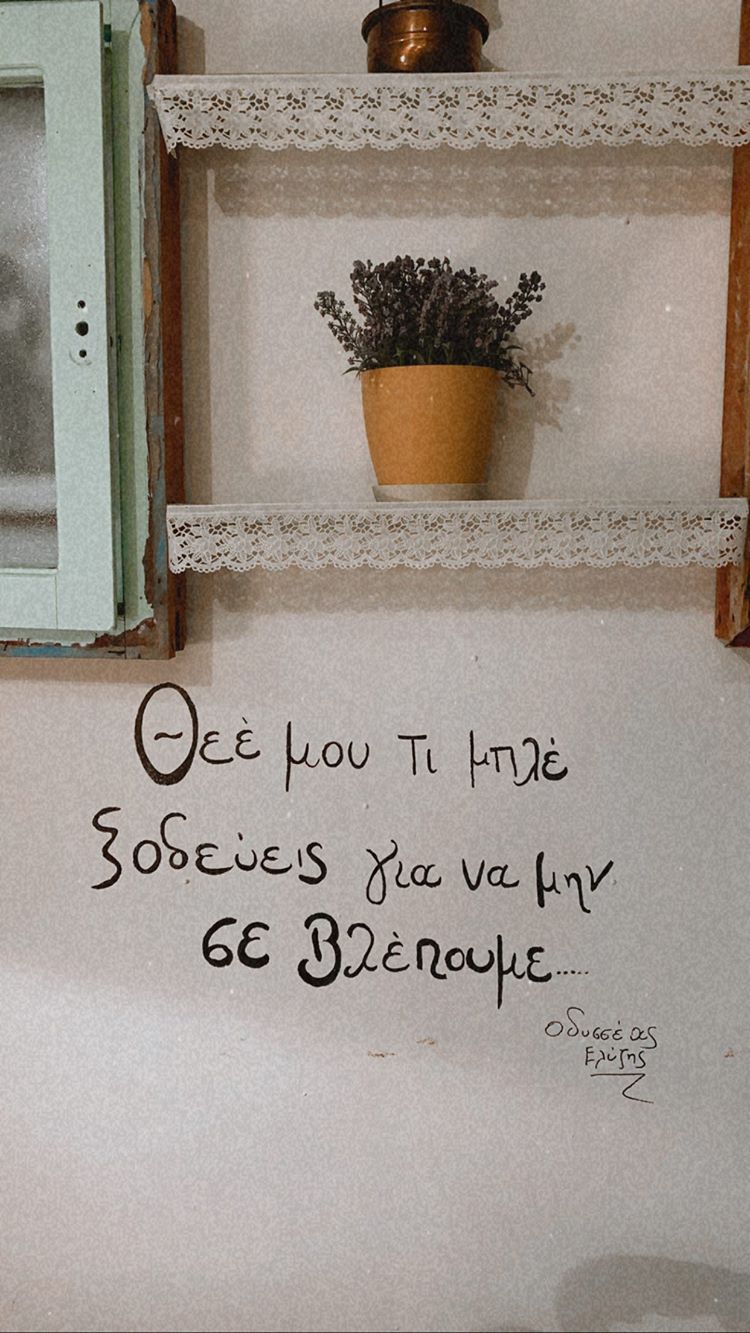 Θεέ μου τι μπλέ
ξοδεύεις για να μην
σε βλέπουμε.....
οδυσσέας
Ελύτης